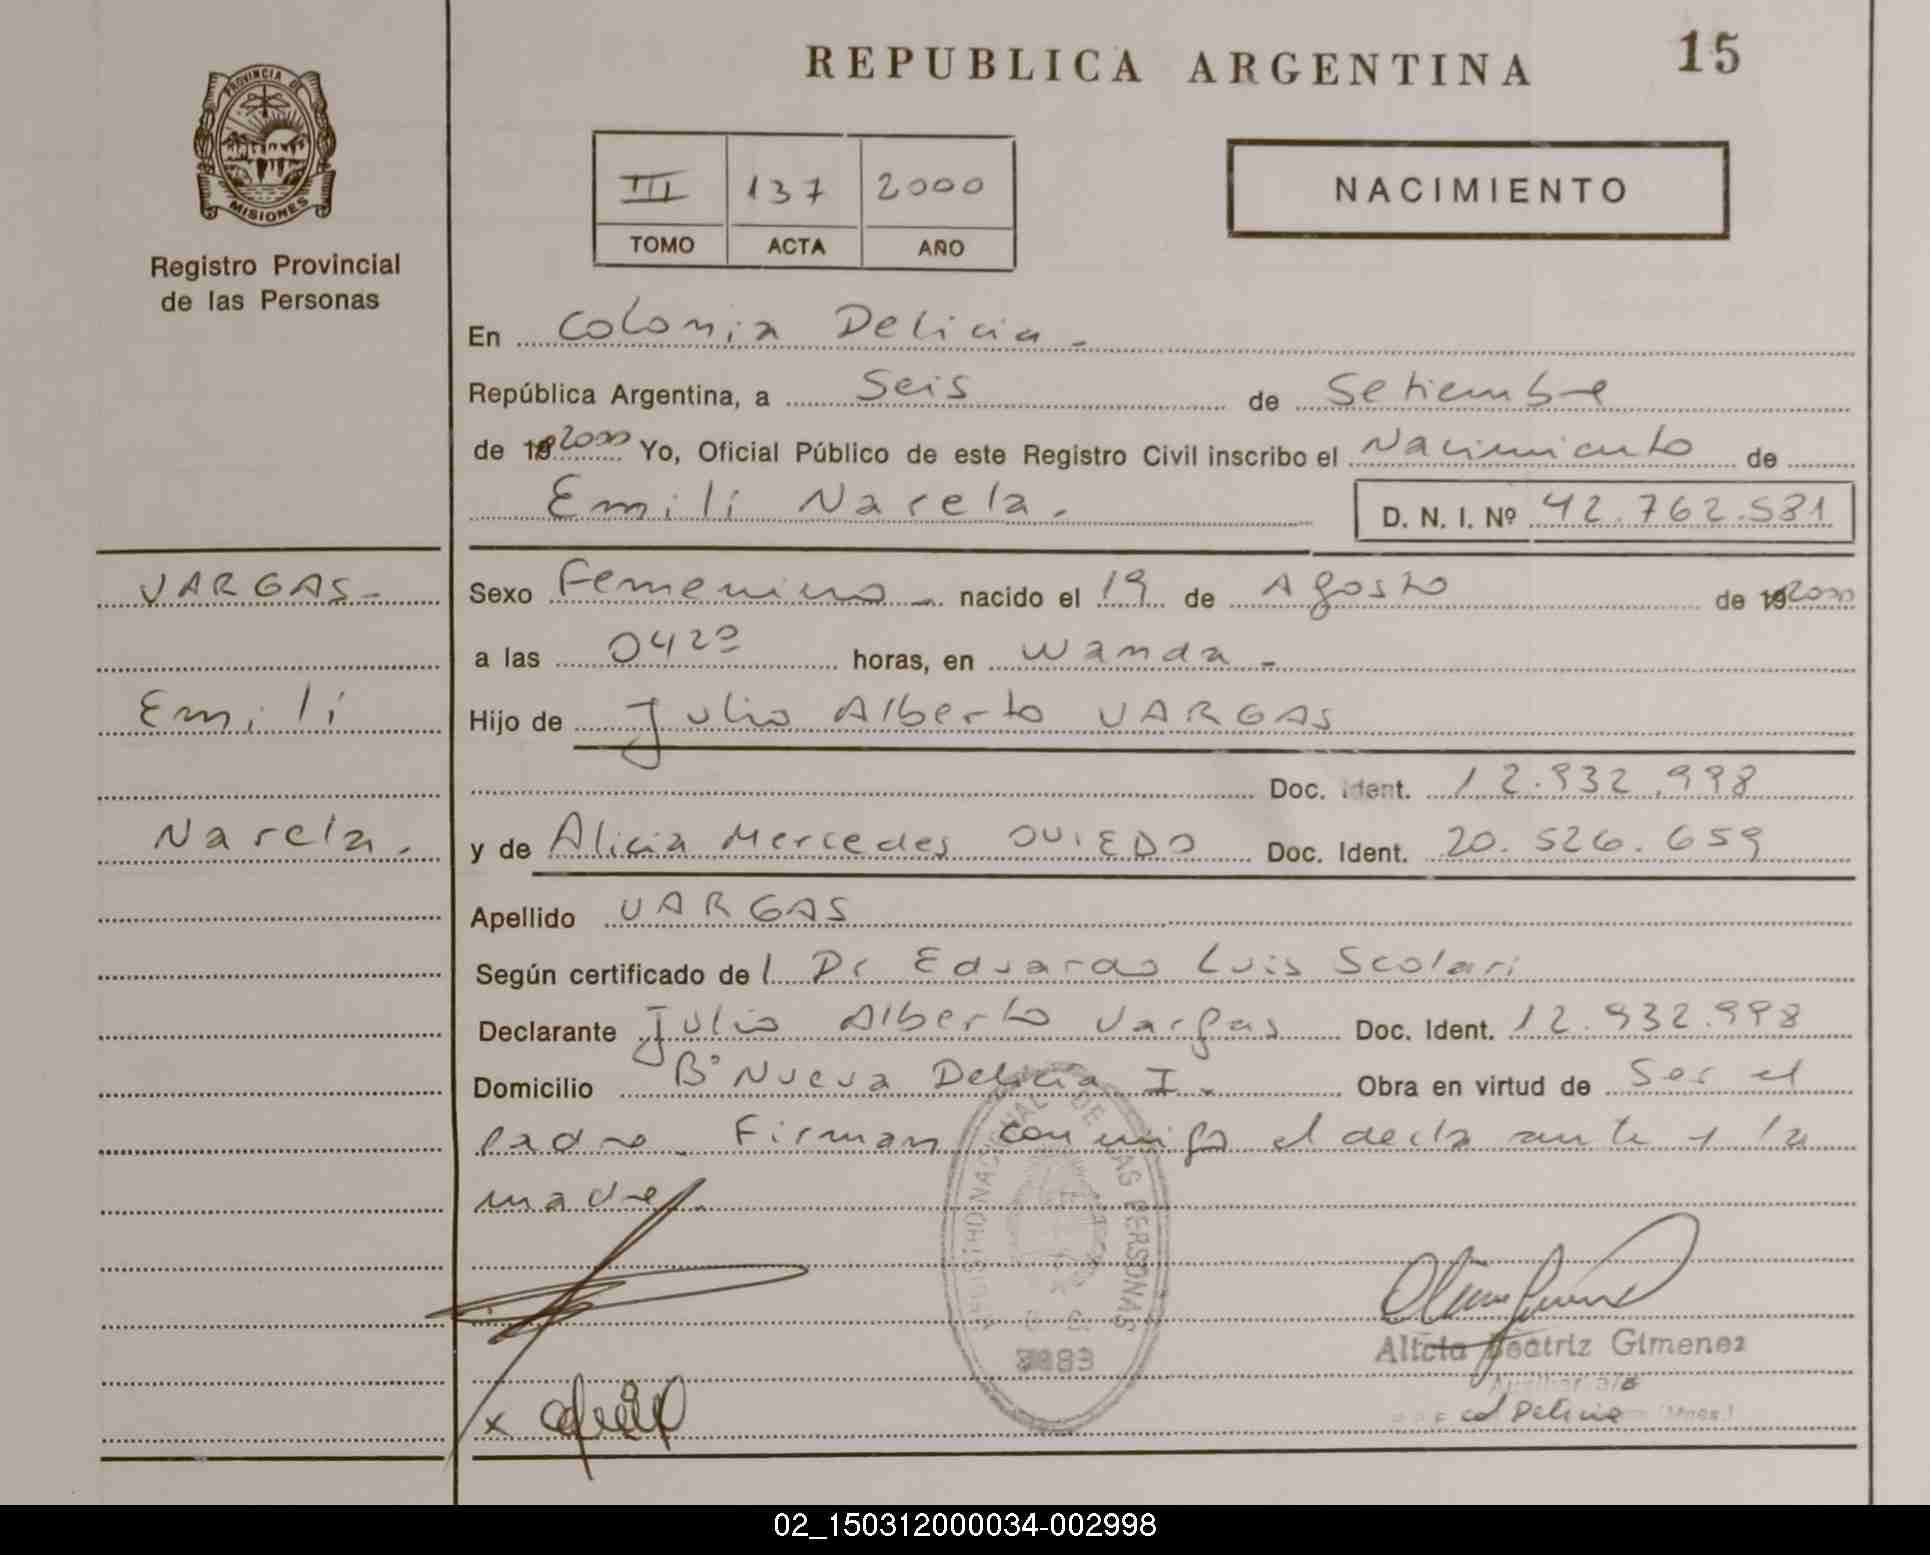 REPUBLICA ARGENTINA
15
PROVINCIA DE
MISIONES
Registro Provincial
de las Personas
III 137 2000
TOMO ACTA AÑO
NACIMIENTO
En Colonia Delicia -
República Argentina, a Seis de Setiembre
de 19 2000 Yo, Oficial Público de este Registro Civil inscribo el Nacimiento de
Emili Narela. D. N. I. Nº 42.762.581
VARGAS -
Emili
Narela.
Sexo Femenino - nacido el 19 de Agosto de 19 2000
a las 04 20 horas, en Wanda -
Hijo de Julio Alberto VARGAS
Doc. Ident. 12.932.998
y de Alicia Mercedes OVIEDO Doc. Ident. 20.526.659
Apellido VARGAS
Según certificado del Dr Eduardo Luis Scolari
Declarante Julio Alberto Vargas Doc. Ident. 12.932.998
Domicilio Bº Nueva Delicia I. Obra en virtud de Ser el
padre. Firman conmigo el declarante y la
madre.
REGISTRO NACIONAL DE LAS PERSONAS
Alicia Beatriz Gimenez
x
Col Delicia (Mnes.)
02_150312000034-002998